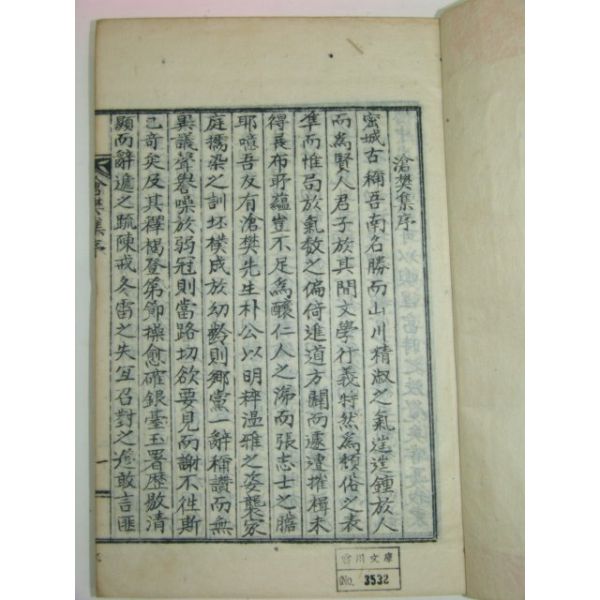 滄樊集序
密城古稱吾南名勝而山川精淑之氣蓬蓬鍾於人
而爲賢人君子於其間文學行義特然爲頹俗之表
準而惟局於氣數之偏倚進道方闢而遽遭摧楫未
得長布所蘊豈不足爲釀仁人之涕而張志士之膽
耶噫吾友有滄樊先生朴公以明粹溫雅之姿襲家
庭擩染之訓坯樸成於幼齡則鄉黨一辭稱讚而無
異議聲譽噪於弱冠則當路切欲要見而謝不徃斯
已奇矣及其釋褐登第節操愈確銀臺玉署歷敭清
顯而辭遞之疏陳戒冬雷之失宜召對之
敢言匪
滄樊集序
一
宮川文庫
No. 3532